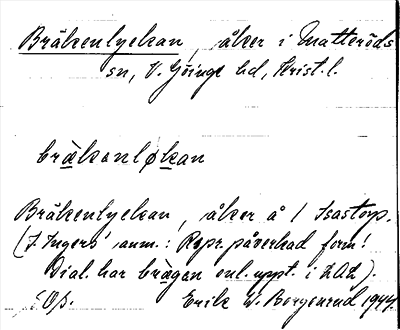 Bräkenlyckan, åker i Matteröds
sn, V. Göinge hd, Krist. l.
bräkanløkan
Bräkenlyckan, åker å 1 Isastorp.
(J. Ingers' anm.: Rspr. påverkad form!
Dial. har brägan enl. uppt. i LAL).
Erik W. Borgenrud 1944